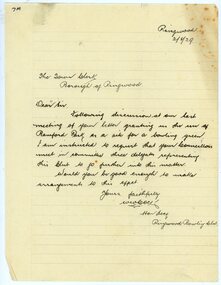 Ringwood
The Town Clerk
Borough of Ringwood
Dear Sir
Following discussion at our last
meeting of your letter granting us the use of
Park as a site for a bowling green
I am instructed to request that your Councillors
meet in committee three delegates representing
this Club to go further into this matter
Would you be good enough to make
arrangements to this effect
Yours faithfully
Hon Secy
Ringwood Bowling Club